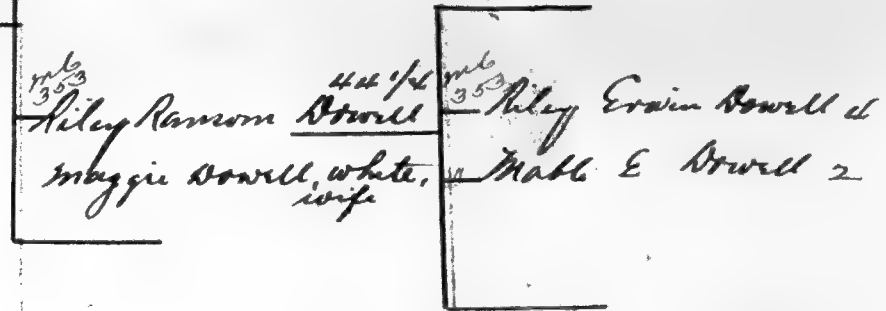 353
Riley Ransom Dowell 44 1/4
Maggie Dowell, white,
wife
353
Riley Erwin Dowell 4
Mable E Dowell 2